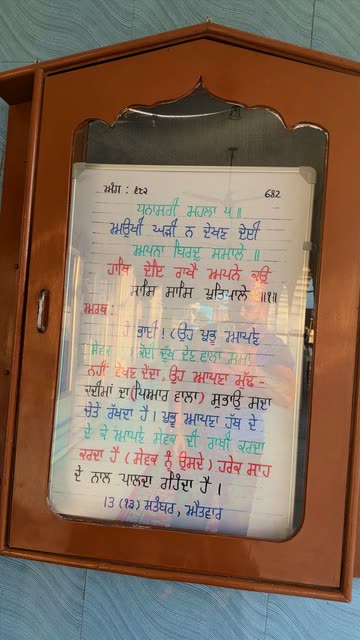 ਅੰਗ : ੬੮੨ 682
ਧਨਾਸਰੀ ਮਹਲਾ ੫ ॥
ਅਉਖੀ ਘੜੀ ਨ ਦੇਖਣ ਦੇਈ
ਅਪਨਾ ਬਿਰਦੁ ਸਮਾਲੇ ॥
ਹਾਥ ਦੇਇ ਰਾਖੈ ਅਪਨੇ ਕਉ
ਸਾਸਿ ਸਾਸਿ ਪ੍ਰਤਿਪਾਲੇ ॥੧॥
ਅਰਥ :
ਹੇ ਭਾਈ ! (ਉਹ ਪ੍ਰਭੂ ਆਪਣੇ
ਸੇਵਕ ਕੋਈ ਦੁੱਖ ਦੇਣ ਵਾਲਾ ਸਮਾਂ
ਨਹੀਂ ਦੇਖਣ ਦੇਂਦਾ, ਉਹ ਆਪਣਾ ਮੁੱਢ-
ਕਦੀਮਾਂ ਦਾ (ਪਿਆਰ ਵਾਲਾ) ਸੁਭਾਉ ਸਦਾ
ਚੇਤੇ ਰੱਖਦਾ ਹੈ । ਪ੍ਰਭੂ ਆਪਣਾ ਹੱਥ ਦੇ
ਦੇ ਕੇ ਆਪਣੇ ਸੇਵਕ ਦੀ ਰਾਖੀ ਕਰਦਾ
ਕਰਦਾ ਹੈ (ਸੇਵਕ ਨੂੰ ਉਸਦੇ) ਹਰੇਕ ਸਾਹ
ਦੇ ਨਾਲ ਪਾਲਦਾ ਰਹਿੰਦਾ ਹੈ ।
13 (੧੩) ਸਤੰਬਰ, ਐਤਵਾਰ